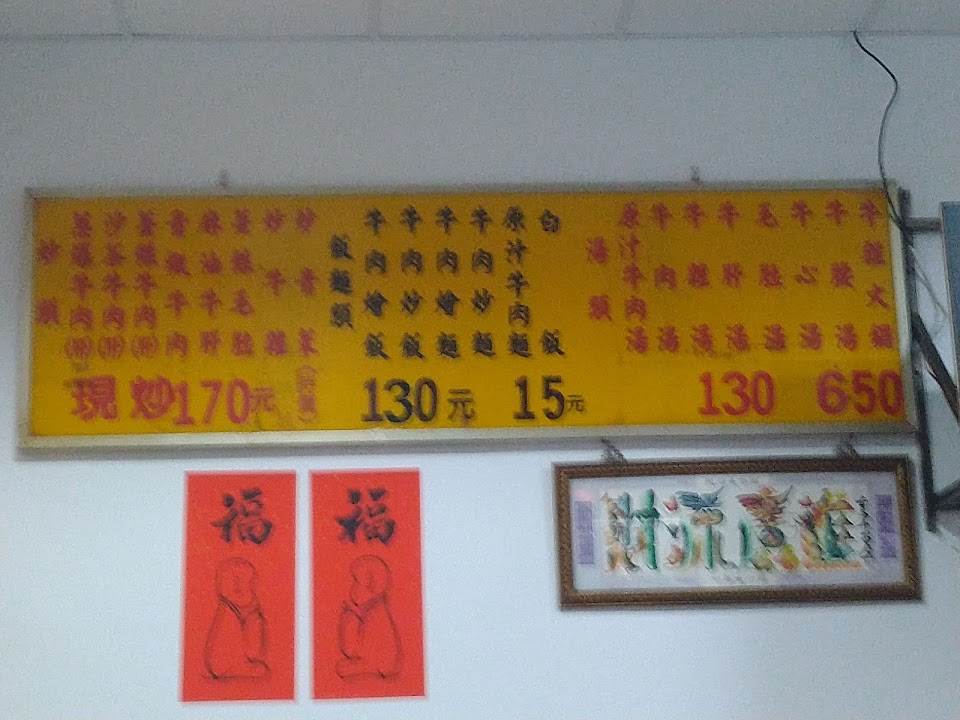 炒類
蔥爆牛肉(肝)
沙茶牛肉(肝)
薑絲牛肉(肝)
青椒牛肉
麻油牛肝
薑絲毛肚
炒牛雜
炒青菜
現炒170元
飯麵類
牛肉燴飯
牛肉炒飯
牛肉燴麵
牛肉炒麵
原汁牛肉麵
白飯
130元
15元
湯類
原汁牛肉湯
牛肉湯
牛雜湯
牛肝湯
毛肚湯
牛心湯
牛湯
牛雜火鍋
130
650
福
福
財源廣進